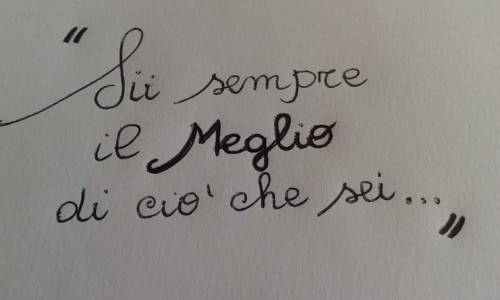 "Sii sempre
il Meglio
di ciò che sei..."